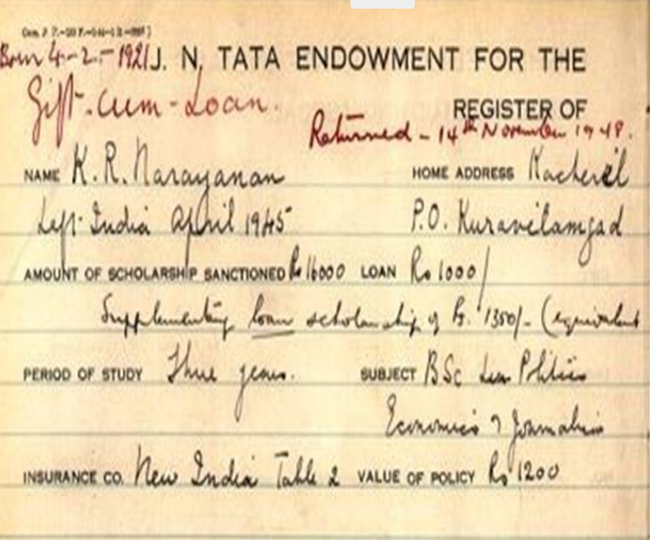 Born 4-2-1921 J. N. TATA ENDOWMENT FOR THE
Gift-cum-Loan. REGISTER OF
Returned - 14th November 1948.
NAME K. R. Narayanan HOME ADDRESS Kacheril
Left India April 1945 P.O. Kuravilamgad
AMOUNT OF SCHOLARSHIP SANCTIONED Rs 16000 LOAN Rs 1000/
Supplementing loan scholarship of Rs. 1350/- (equivalent
PERIOD OF STUDY Three years. SUBJECT BSc Politics
Economics & Journalism
INSURANCE CO. New India Table 2 VALUE OF POLICY Rs 1200